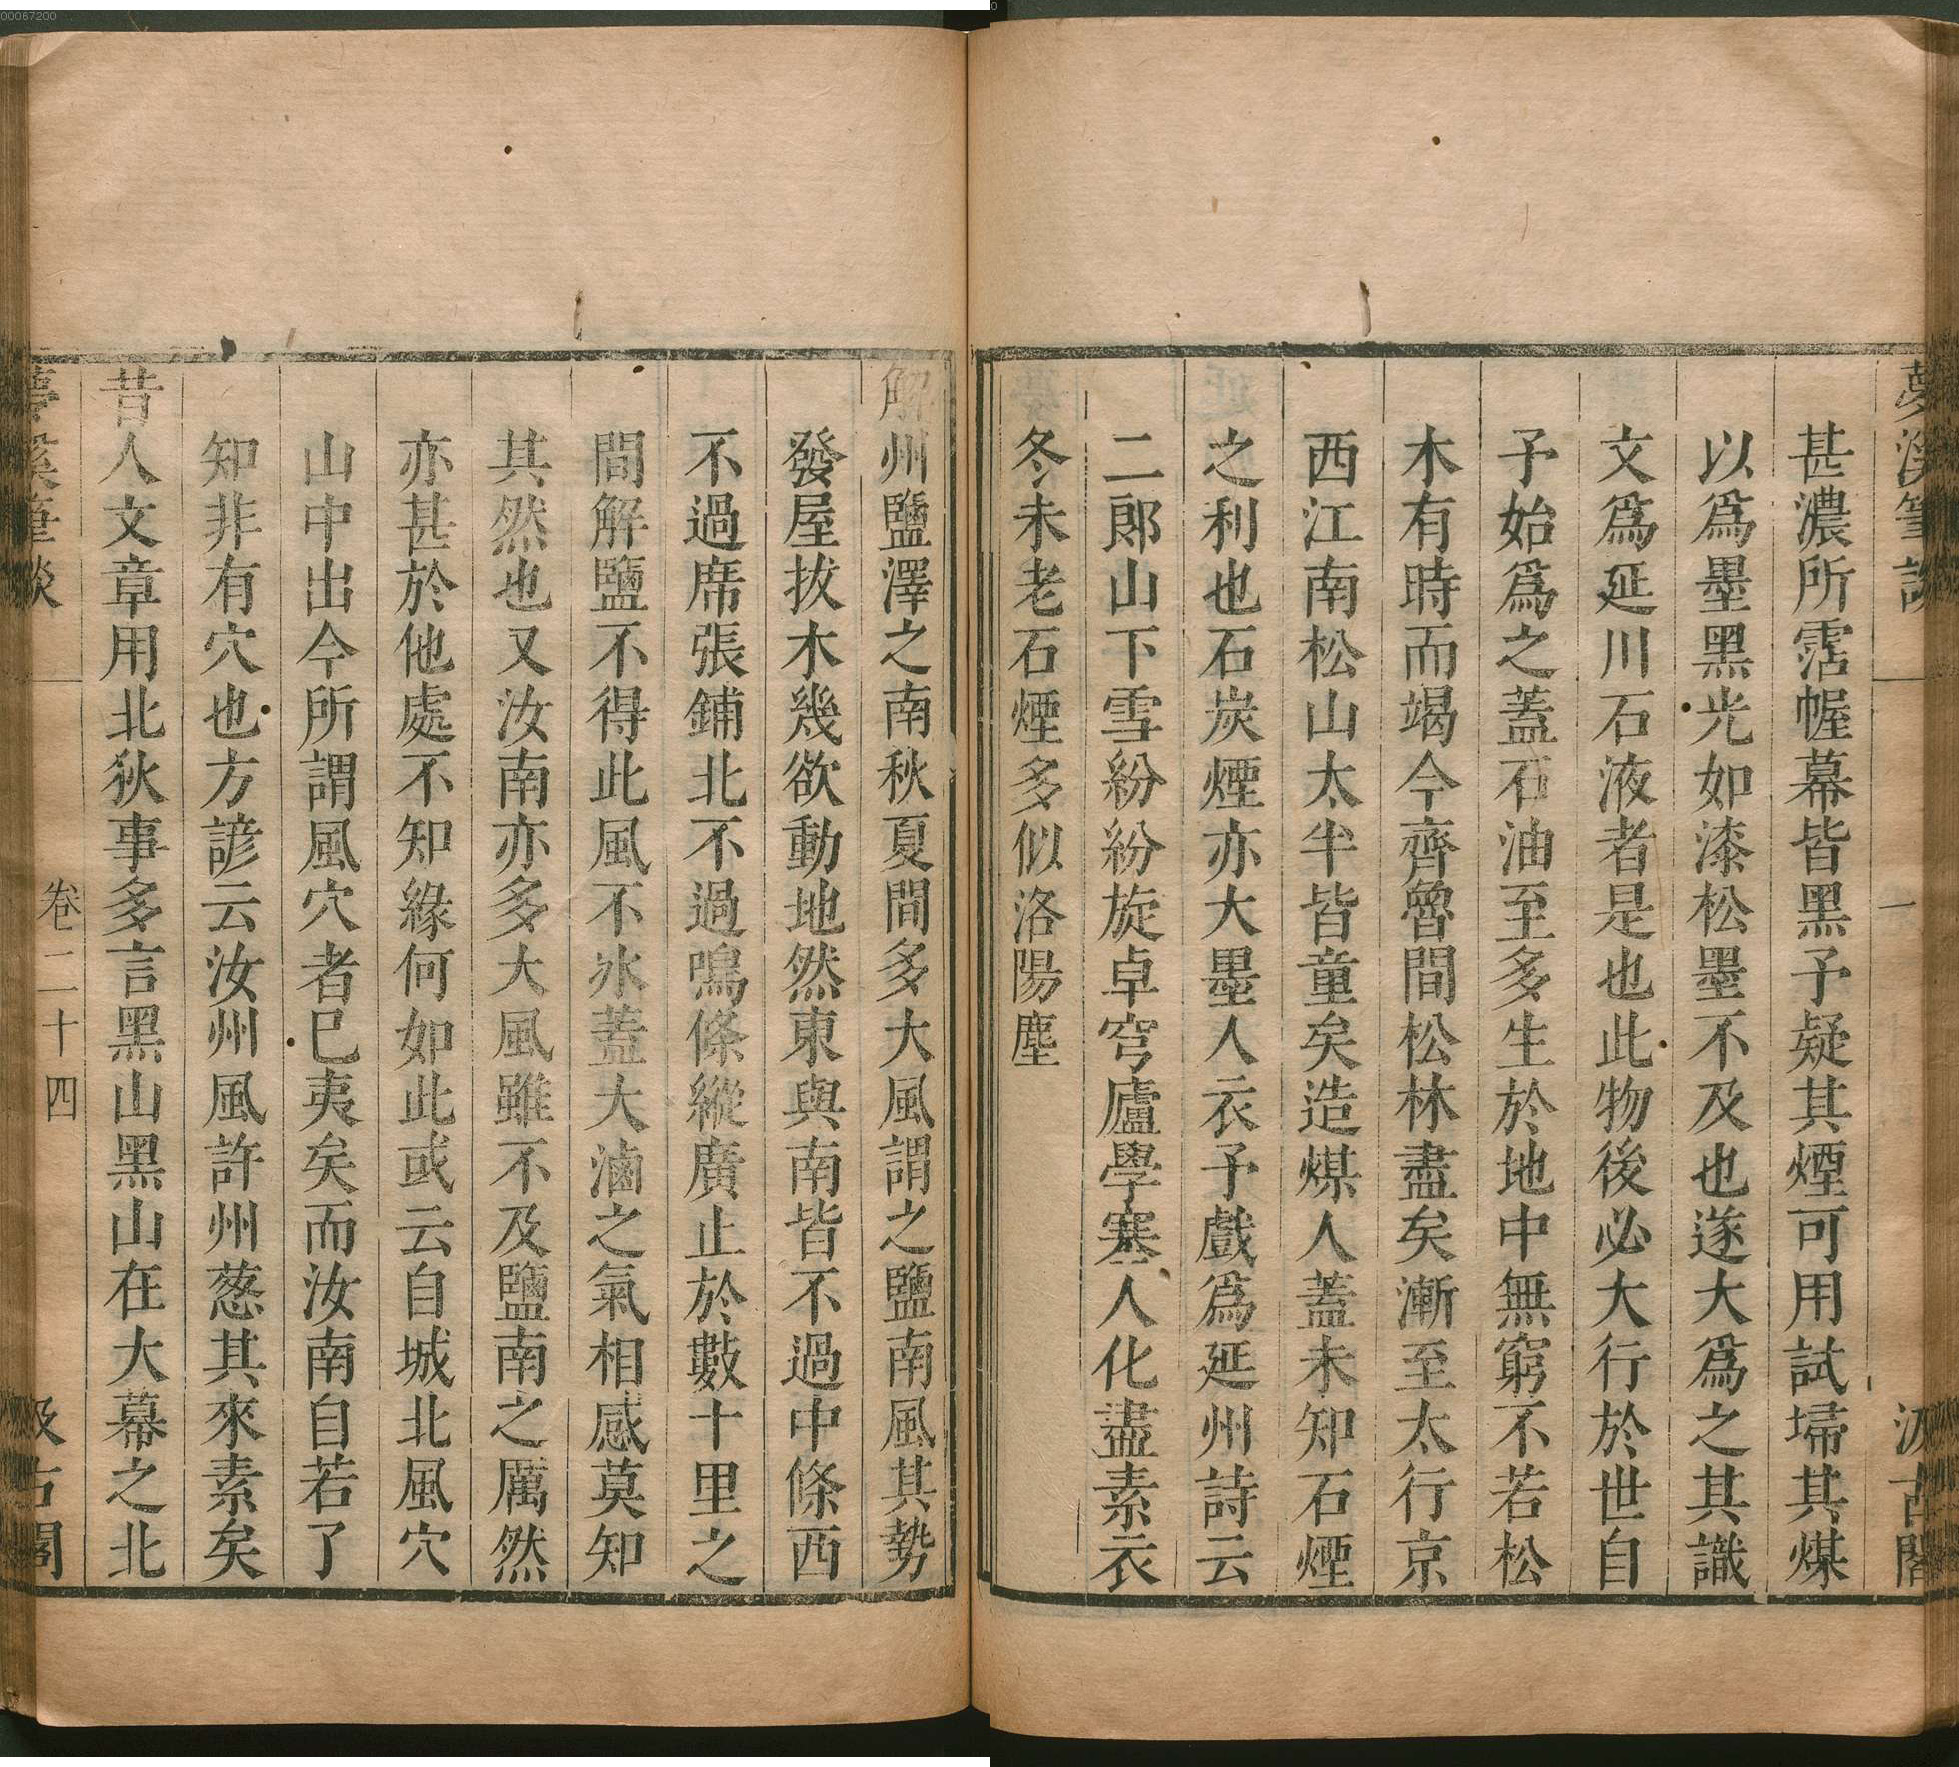 夢溪筆談 一 汲古閣
甚濃所霑幄幕皆黑予疑其煙可用試埽其煤
以爲墨黑光如漆松墨不及也遂大爲之其識
文爲延川石液者是也此物後必大行於世自
予始爲之蓋石油至多生於地中無窮不若松
木有時而竭今齊魯間松林盡矣漸至太行京
西江南松山太半皆童矣造煤人蓋未知石煙
之利也石炭煙亦大墨人衣予戲爲延州詩云
二郎山下雪紛紛旋卓穹廬學塞人化盡素衣
冬未老石煙多似洛陽塵
解州鹽澤之南秋夏間多大風謂之鹽南風其勢
發屋拔木幾欲動地然東與南皆不過中條西
不過席張鋪北不過鳴條縱廣止於數十里之
間解鹽不得此風不氷蓋大滷之氣相感莫知
其然也又汝南亦多大風雖不及鹽南之厲然
亦甚於他處不知緣何如此或云自城北風穴
山中出今所謂風穴者巳夷矣而汝南自若了
知非有穴也方諺云汝州風許州蔥其來素矣
昔人文章用北狄事多言黑山黑山在大幕之北
夢溪筆談 卷二十四 汲古閣
00067200